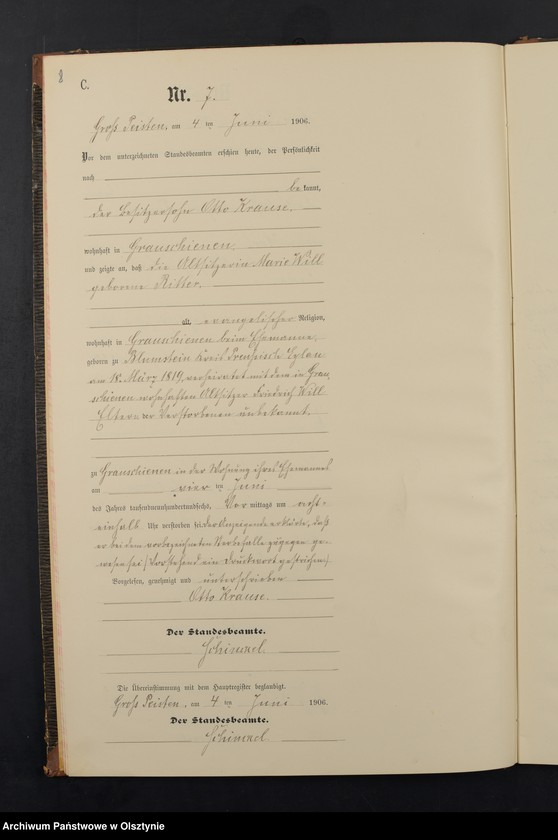 8
C.
Nr. 7.
Groß Peisten, am 4 ten Juni 1906.
Vor dem unterzeichneten Standesbeamten erschien heute, der Persönlichkeit
nach
be kannt,
der Besitzersohn Otto Krause,
wohnhaft in Grauschienen,
und zeigte an, daß die Altsitzerin Marie Will
geborene Ritter,
alt, evangelischer Religion,
wohnhaft in Grauschienen beim Ehemanne,
geboren zu Blumstein Kreis Preußisch Eylau
am 18. März 1819, verheiratet mit dem in Grau
schienen wohnhaften Altsitzer Friedrich Will
Eltern der Verstorbenen unbekannt,
zu Grauschienen in der Wohnung ihres Ehemannes
am vier ten Juni
des Jahres tausendneunhundertundsechs, Vor mittags um
einhalb Uhr verstorben sei, der Anzeigende erklärte, daß
er bei dem vorbezeichneten Sterbefalle zugegen ge-
wesen sei (Vorstehend ein Druckwort gestrichen)
Vorgelesen, genehmigt und unterschrieben
Otto Krause.
Der Standesbeamte.
Schimmel
Die Übereinstimmung mit dem Hauptregister beglaubigt.
Groß Peisten, am 4 ten Juni 1906.
Der Standesbeamte.
Schimmel
Archiwum Państwowe w Olsztynie